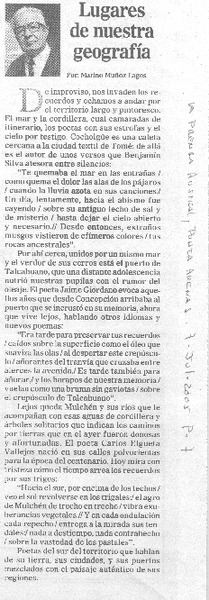 Lugares
de nuestra
geografía
Por: Marino Muñoz Lagos
De improviso, nos invaden los re-
cuerdos y echamos a andar por
el territorio largo y pintoresco.
El mar y la cordillera, cual camaradas de
itinerario, los poetas con sus estrofas y el
cielo por testigo. Cocholgüe es una caleta
cercana a la ciudad textil de Tomé: de allá
es el autor de unos versos que Benjamín
Silva atesora entre silencios:
"Te quemaba el mar en las entrañas /
como quema el dolor las alas de los pájaros
/ cuando la lluvia azota en sus canciones./
Un día, lentamente, hacia el abismo fue
cayendo / sobre su antiguo lecho de sal y
de misterio / hasta dejar el cielo abierto
y necesario.// Desde entonces, extraños
musgos vistieron de efímeros colores / tus
rocas ancestrales".
Por ahí cerca, unidos por un mismo mar
y el verdor de sus cerros está el puerto de
Talcahuano, que una distante adolescencia
nutrió nuestras pupilas con el rumor del
oleaje. El poeta Jaime Giordano evoca aque-
llos años que desde Concepción arribaba al
puerto que se incrustó en su memoria, ahora
que vive lejos, hablando otros idiomas y
nuevos poemas:
"Era tarde para preservar tus recuerdos
/ caídos sobre la superficie como el óleo que
suaviza las olas / al despertar este crepúscu-
lo / añorantes del tranvía que cruzaba entre
alerces la avenida./ Es tarde también para
añorar / y los horados de nuestra memoria /
vuelan como una bruma sin gaviotas / sobre
el crepúsculo de Talcahuano".
Lejos queda Mulchén y sus ríos que le
acompañan con esas aguas de cordillera y
árboles solitarios que indican los caminos
por tierras que en el ayer fueron donosas
y afortunadas. El poeta Carlos Elgueta
Vallejos nació en sus calles polvorientas
para la época del centenario. Hoy mira con
tristeza cómo el tiempo arrea los recuerdos
por sus trigos:
"Hacia el sur, por encima de los techos /
veo el sol revolverse en los trigales:/ el agro
de Mulchén de trecho en trecho / vibra exube-
rancias vegetales.// Y en cada ondulación
cada repecho / entrega a la mirada sus ten-
dales:/ nada a destiempo, nada contrahecho
/ sobre la vastedad de los pastales".
Poetas del sur del territorio que hablan
de su tierra, sus ciudades, y sus puertos
mezclados con el paisaje auténtico de sus
regiones.
La Prensa Austral, Punta Arenas, 7 Jul. 2005 p. 7